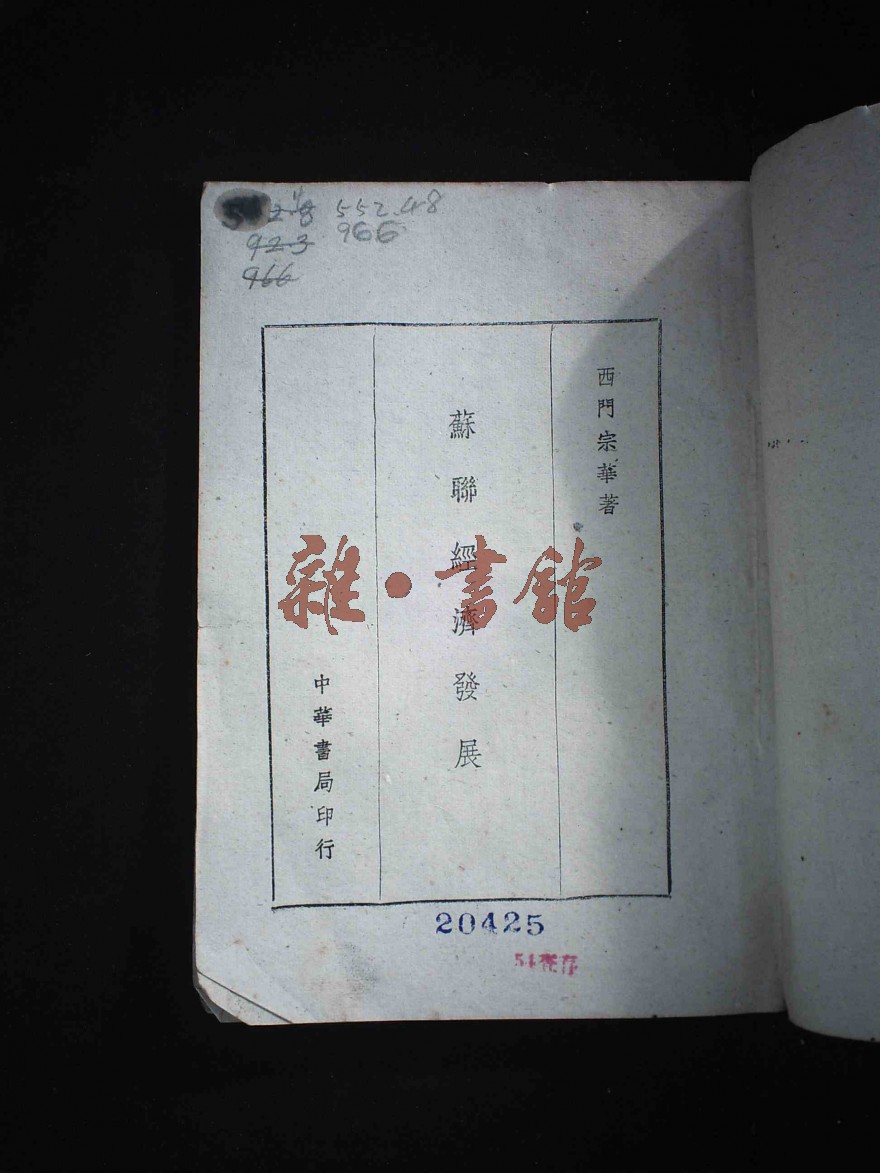 552.48
923 966
966
西門宗華著
蘇聯經濟發展
中華書局印行
雜·書館
20425